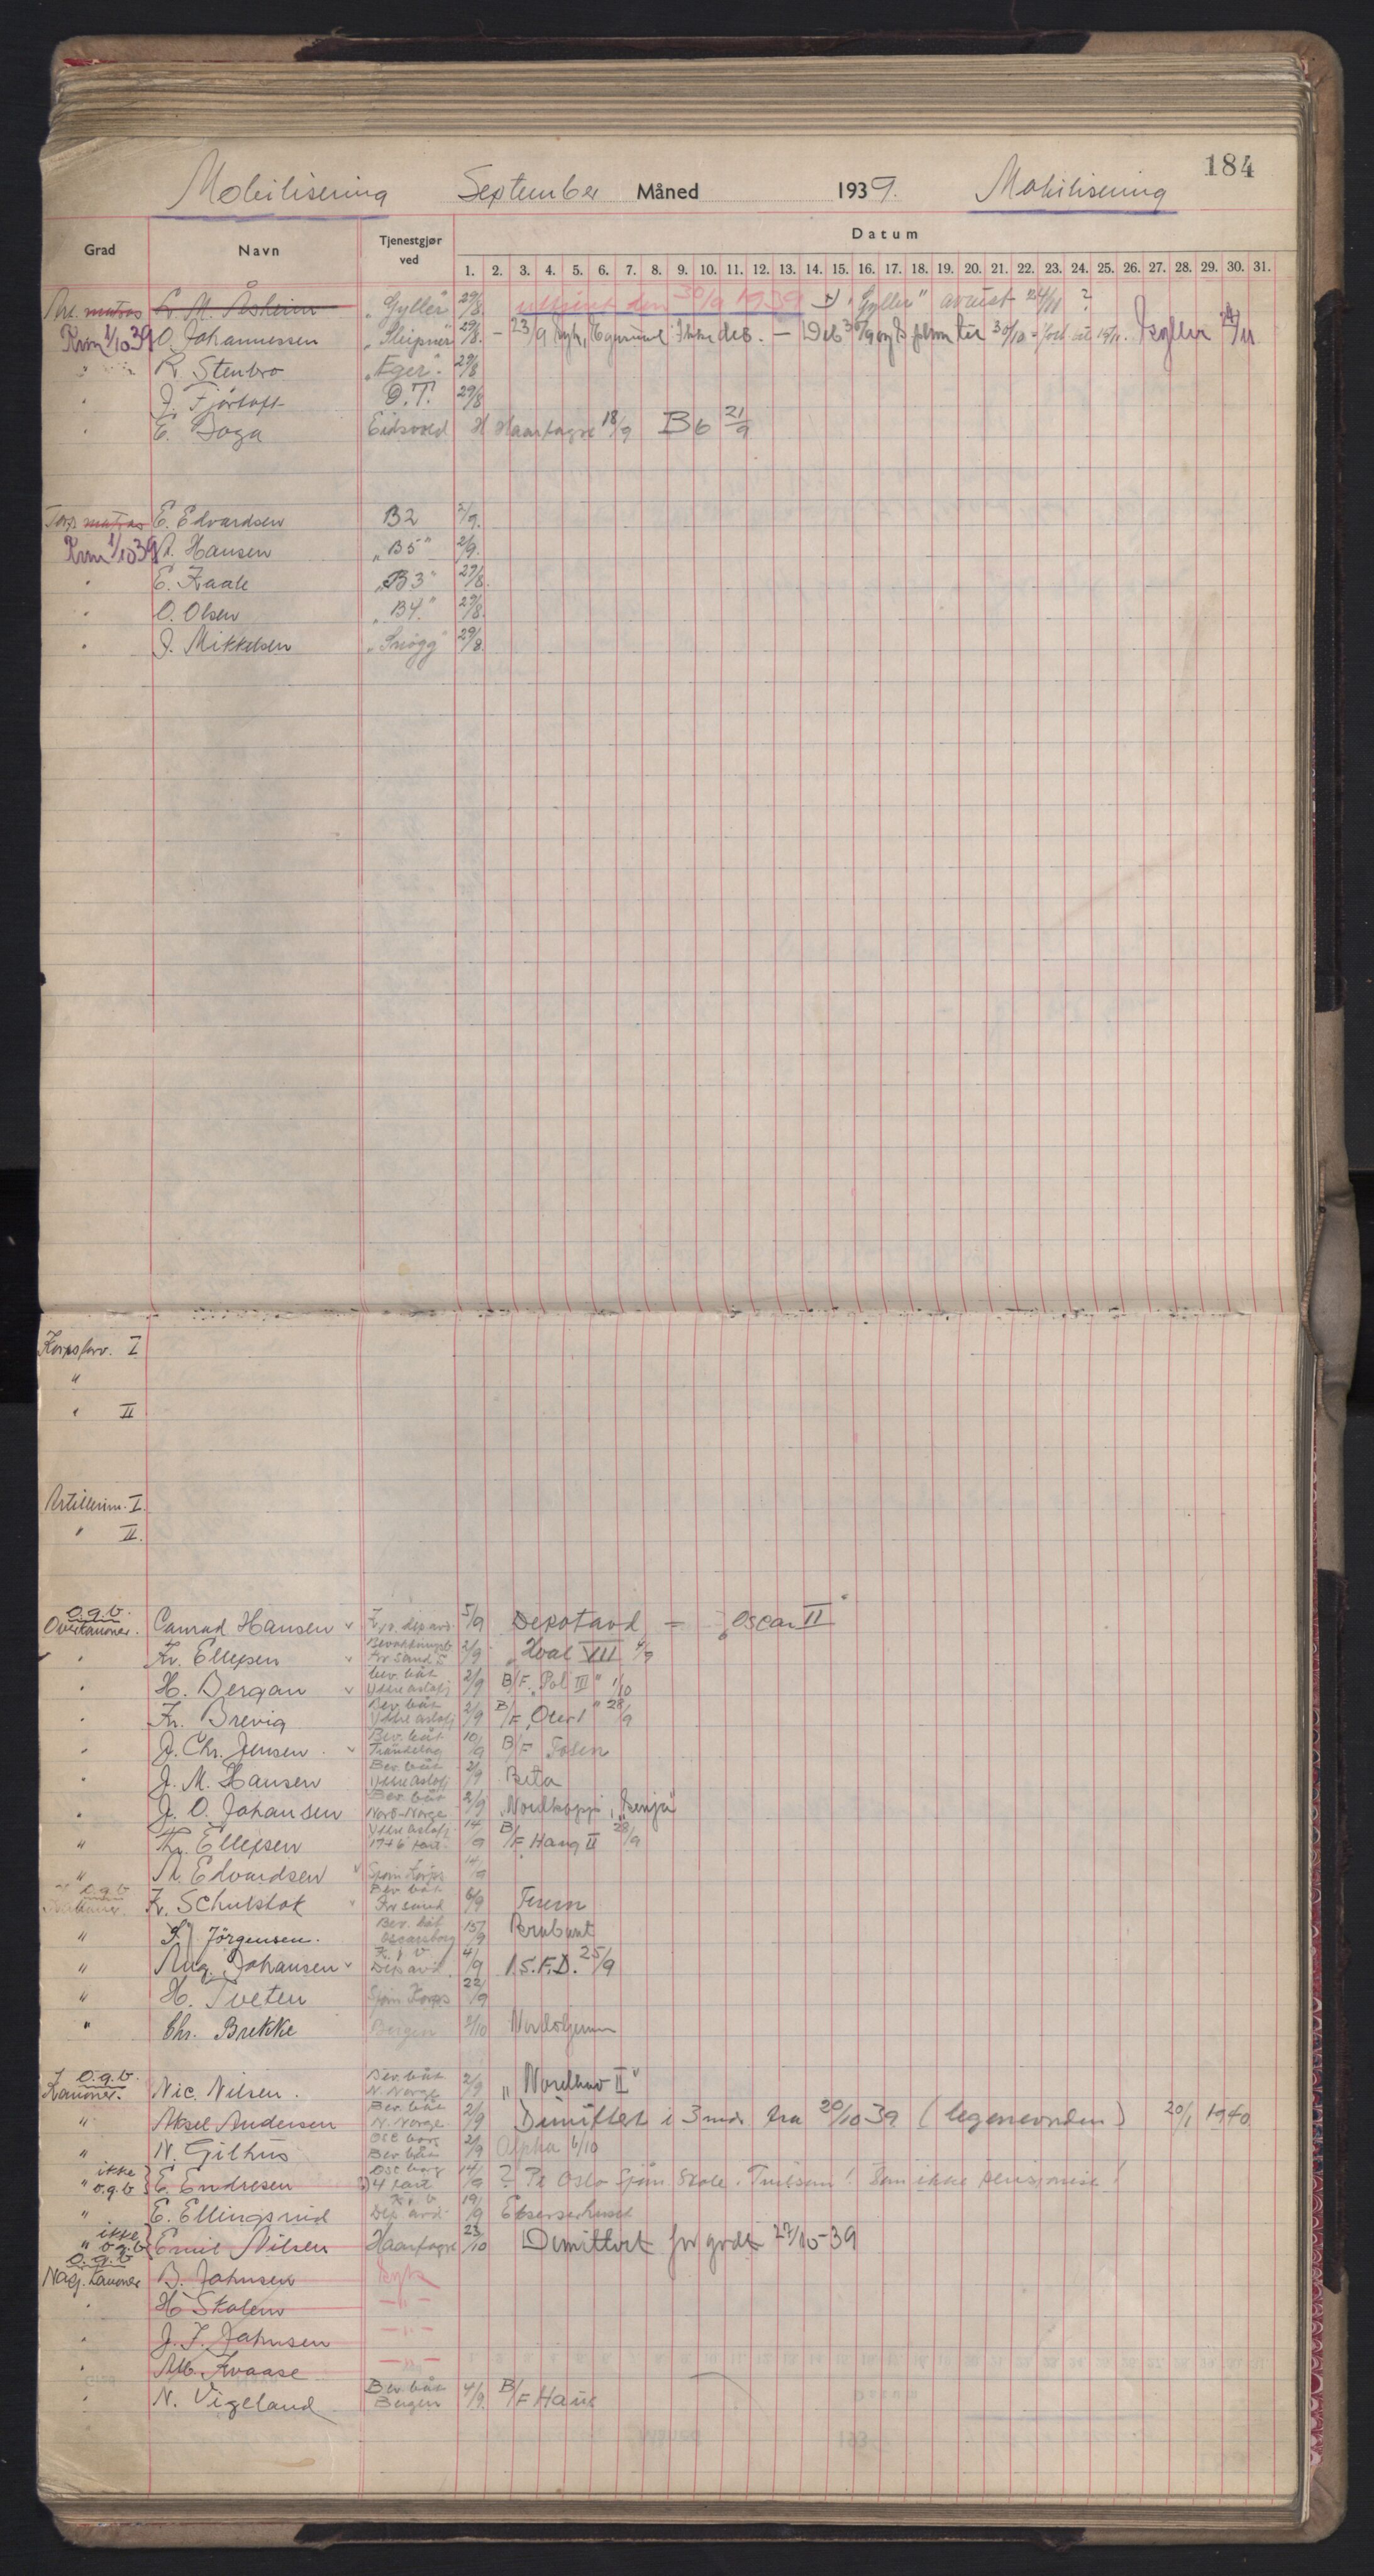 184
Mobilisering September Måned 1939. Mobilisering
Grad Navn Tjenestgjør ved Datum
1. 2. 3. 4. 5. 6. 7. 8. 9. 10. 11. 12. 13. 14. 15. 16. 17. 18. 19. 20. 21. 22. 23. 24. 25. 26. 27. 28. 29. 30. 31.
matros M. Åsheim "Gyller" 29/8 uttjent den 30/9 1939 "Gyller" 24/11 ?
Kvm 1/10 39 O. Johannessen "Sleipner" 29/8. - 23/9 syk, Ikke deb. - Deb 30/10 Gyller 24/11
" R. Stenbro "Æger" 29/8
" J. Fjørtoft O.T. 29/8
" E. Doga Eidsvold H Haarfagre 18/9 B6 21/9
Torp. matros E. Edvardsen B2 2/9.
Kvm 1/10 39 A. Hansen "B5" 2/9.
" E. Kaale "B3" 29/8.
" O. Olsen "B4." 29/8.
" J. Mikkelsen "Snögg" 29/8.
Korpsforv. I
"
" II
Artillerim. I.
" II.
O.g.b.
Overkanoner. Conrad Hansen v dep. avd. 5/9 Depotavd = "Oscar II"
" Kr. Ellefsen v Kr sund 2/9 "Hval VII" 4/9
" H. Bergan v Bev. båt Ytre Oslofj 2/9 B/F. "Pol III" 1/10
" Kr. Brevig Bev. båt Ytre Oslofj 2/9 B/F "Oter I" 28/9
" J. Chr. Jensen. v Bev. båt Trøndelag 10/9 B/F Fosen
" J. M. Hansen Bev. båt Ytre Oslofj 2/9 Beta
" J. O. Johansen Bev. båt Nord-Norge 2/9 Nordkapp, "Senja"
" Kr. Ellefsen Ytre Oslofj. 14/9 B/F Haug II 28/9
" A. Edvardsen v Sjøm. Korps 14/9
O.g.b
Kanoner. K. Schulstok v Bev båt Kr sund 6/9 Furern
" S. Jörgensen. Bev. båt Oscarsborg 15/9 Brabant
" Aug. Johansen v Dep avd. 4/9 1.S.F.D. 25/9
" H. Tveten Sjøm Korps 22/9
" Chr. Brekke Bergen 2/10
O.g.b.
Kanoner. Nic. Nilsen. Bev. båt N. Norge 2/9 "Nordhav II"
" Aksel Andersen Bev. båt N. Norge 2/9 Dimittert i 3 mdr fra 20/10 39 (legeerverden) 20/1 1940
" N. Gilhus Osc borg Bev båt 2/9 Alpha 6/10
" ikke o.g.b } E. Endresen Osc borg 14/9 ? På Oslo Sjøm. Skole. ikke pensjonist!
" E. Ellingsrud Dep avd. 19/9
" ikke o.g.b { Emil Nilsen Haarfagre 23/10 Dimittert for godt 27/10-39
O.g.b
Maj. Kanoner B. Johnsen Syk
" H Skolem - " -
" J. F. Johnsen - " -
" Alb. Kvaase - " -
" N. Vigeland Bev. båt Bergen 4/9. B/F Hauk